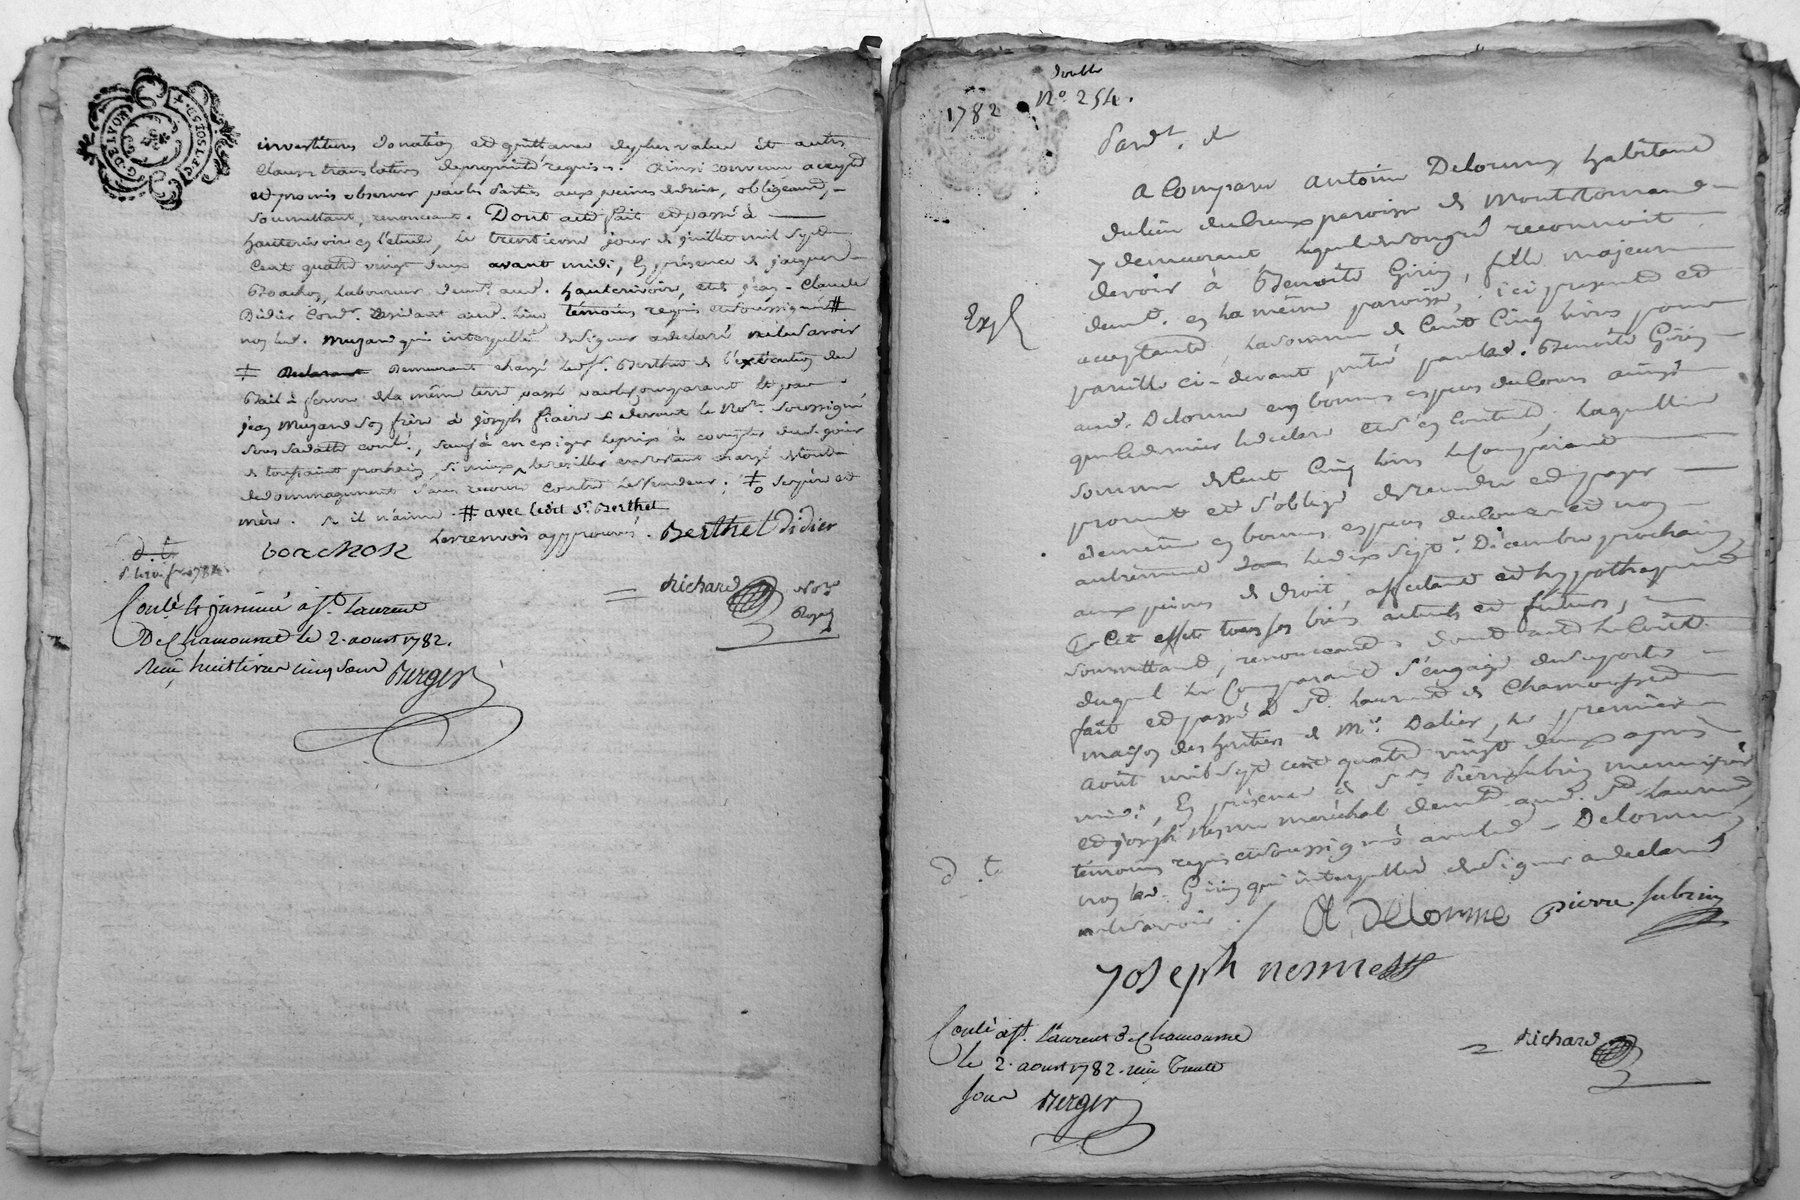 G. DE LYON
investiture donation et quittance de plus value et autres
clauses translatives de propriété requises. Ainsi convenu accepté
et promis observer par les parties aux peines de droit, obligeant,
soumettant, renonceant. Dont acte fait et passé à
hauterivoire en l'étude, le trentieme jour de juillet mil sept
cent quatre vingt deux avant midi, En présence de jacques
laboureur demt. aud. hauterivoire, et de jean-Claude
Didier Cordr. résidant aud. lieu témoins requis et soussignés #
non led. Mugand qui interpellé de signer a déclaré ne le savoir
‡ Declarant Demeurant chargé led. sr. Berthet de l'exécution du
Bail à ferme de la même terre passé par le comparant et par
jean Mugand son frère à joseph devant le Nore. soussigné
sous sa datte contlé., sauf à en exiger le prix à compter du jour
de toussaint prochain, si mieux
dedommagements sans recours contre le vendeur ; ‡
mère. si il n'aime # avec ledit sr. Berthet
Les renvois approuvés. Berthet didier
borchon
d. t.
Richard Nore
Royal
Contlé. et insinué à st. Laurent
De Chamousset le 2. aoust 1782.
Reçu huit livres cinq sous Berger
1782
double
No. 254.
Pardt. &
A Comparu antoine Delorme habitant
du lieu du Creux paroisse de Montromand
y demeurant, lequel de son gré reconnoit
devoir à Benoite Girin, fille majeure
demte. en la même paroisse, ici presente et
Exp
acceptante, la somme de Cent Cinq livres pour
pareille ci-devant prêté par lad. Benoite Girin
aud. Delorme en bonnes especes du Cours ainsi
que le dernier le declare et s'en contente, laquelle
somme de Cent Cinq livres le Comparant
promet et s'oblige de rendre et payer
de même en bonnes especes du Cours et non
autrement dans le dix Septe. Décembre prochain
aux peines de droit, affectant et hypothequant
à Cet effet tous ses biens actuels et futurs,
soumettant, renonceant, dont acte le Coût
duquel le Comparant s'engage de suporter
fait et passé à St. Laurent de Chamousset
maison des heritiers de Me. Dalier, le premier
Août mil Sept cent quatre vingt deux après
midi, En présence de sr. Pierre Subrin menuisier
et joseph Nesme maréchal demts. aud. St. Laurent,
témoins requis et soussignés avec led. Delorme
non lad. Girin qui interpellée de signer a declaré
ne le savoir ./
d. t.
A. Delorme pierre subrin
Joseph nesme
Richard
Contlé à st. Laurent de Chamousset
le 2. aoust 1782. reçu Trente
sous Berger